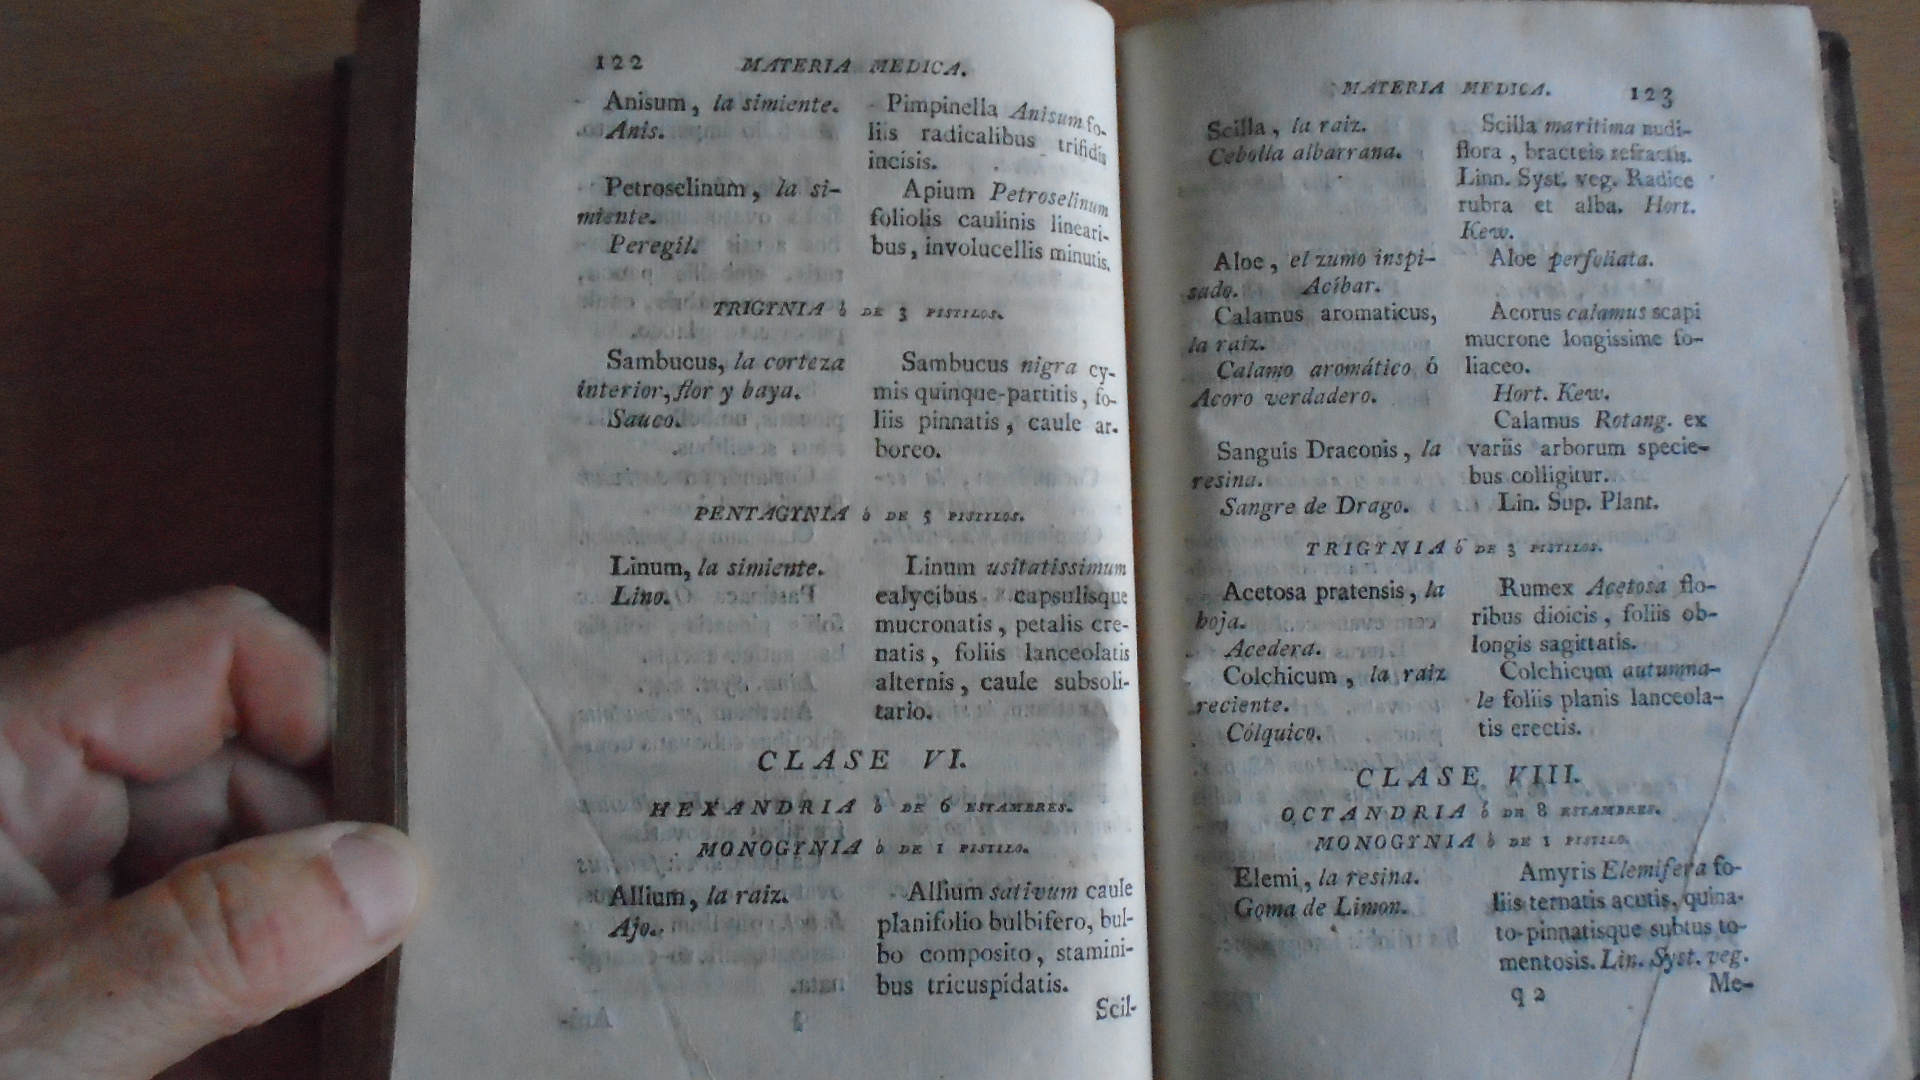 122 MATERIA MEDICA.
Anisum, la simiente.
Anis.
Petroselinum, la si-
miente.
Peregil.
Pimpinella Anisum fo-
liis radicalibus trifidis
incisis.
Apium Petroselinum
foliolis caulinis lineari-
bus, involucellis minutis.
TRIGYNIA ò DE 3 PISTILOS.
Sambucus, la corteza
interior, flor y baya.
Sauco.
Sambucus nigra cy-
mis quinque-partitis, fo-
liis pinnatis, caule ar-
boreo.
PENTAGYNIA ò DE 5 PISTILOS.
Linum, la simiente.
Lino.
Linum usitatissimum
calycibus capsulisque
mucronatis, petalis cre-
natis, foliis lanceolatis
alternis, caule subsoli-
tario.
CLASE VI.
HEXANDRIA ò DE 6 ESTAMBRES.
MONOGYNIA ò DE 1 PISTILO.
Allium, la raiz.
Ajo.
Allium sativum caule
planifolio bulbifero, bul-
bo composito, stamini-
bus tricuspidatis.
Scil-
MATERIA MEDICA. 123
Scilla, la raiz.
Cebolla albarrana.
Aloe, el zumo inspi-
sado. Acíbar.
Calamus aromaticus,
la raiz.
Calamo aromático ó
Acoro verdadero.
Sanguis Draconis, la
resina.
Sangre de Drago.
Scilla maritima nudi-
flora, bracteis refractis.
Linn. Syst. veg. Radice
rubra et alba. Hort.
Kew.
Aloe perfoliata.
Acorus calamus scapi
mucrone longissime fo-
liaceo.
Hort. Kew.
Calamus Rotang. ex
variis arborum specie-
bus colligitur.
Lin. Sup. Plant.
TRIGYNIA ó DE 3 PISTILOS.
Acetosa pratensis, la
hoja.
Acedera.
Colchicum, la raiz
reciente.
Cólquico.
Rumex Acetosa flo-
ribus dioicis, foliis ob-
longis sagittatis.
Colchicum autumna-
le foliis planis lanceola-
tis erectis.
CLASE VIII.
OCTANDRIA ó DE 8 ESTAMBRES.
MONOGYNIA ò DE 1 PISTILO.
Elemi, la resina.
Goma de Limon.
Amyris Elemifera fo-
liis ternatis acutis, quina-
to-pinnatisque subtus to-
mentosis. Lin. Syst. veg.
q 2 Me-